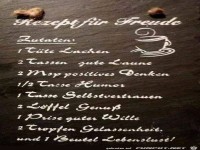 Rezept für Freude
Zutaten:
1 Tüte Lachen
2 Tassen gute Laune
2 Msp positives Denken
1/2 Tasse Humor
1 Tasse Selbstvertrauen
2 Löffel Genuß
1 Prise guter Wille
2 Tropfen Gelassenheit
und 1 Beutel Lebenslust!